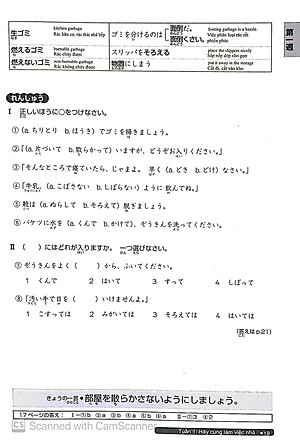 生ゴミ
kitchen garbage
Rác hữu cơ, rác thải nhà bếp
ゴミを分けるのは
面倒だ
面倒くさい。
Sorting garbage is a hassle.
Việc phân loại rác rất phiền phức
燃えるゴミ
burnable garbage
Rác cháy được
スリッパをそろえる
place the slippers nicely
Sắp xếp dép cho ngay ngắn
燃えないゴミ
Rác không cháy được
物置にしまう
put it away in the storage
Cất đi, cất vào kho
第一週
れんしゅう
Ⅰ 正しいほうに○をつけなさい。
①(a. ちりとり b. ほうき)でゴミを掃きましょう。
②「(a. 片づいて b. 散らかって)いますが、どうぞお入りください。」
③「そんなところで寝ていたら、じゃまよ。 早く(a. どき b. どけ)なさい。」
④「牛乳、(a. こぼさない b. しばらない)ように飲んでね。」
⑤ 靴は(a. ぬらして b. そろえて)脱ぎましょう。
⑥ バケツに水を(a. くんで b. かけて)、ぞうきんを洗ってください。
Ⅱ ( )にはどれが入りますか。 一つ選びなさい。
⑦ ぞうきんをよく( )から、ふいてください。
1 くんで 2 はいて 3 すって 4 しぼって
⑧「汚い手で目を( )いけませんよ。」
1 こすっては 2 みがいては 3 そろえては 4 はいては
(答えは p.21)
きょうの一言 • 部屋を散らかさないようにしましょう。
17ページの答え:Ⅰ-①b ②a ③b ④a ⑤b ⑥a Ⅱ-⑦3 ⑧2
Tuần 1: Hãy cùng làm việc nhà • 19
CS Scanned with CamScanner